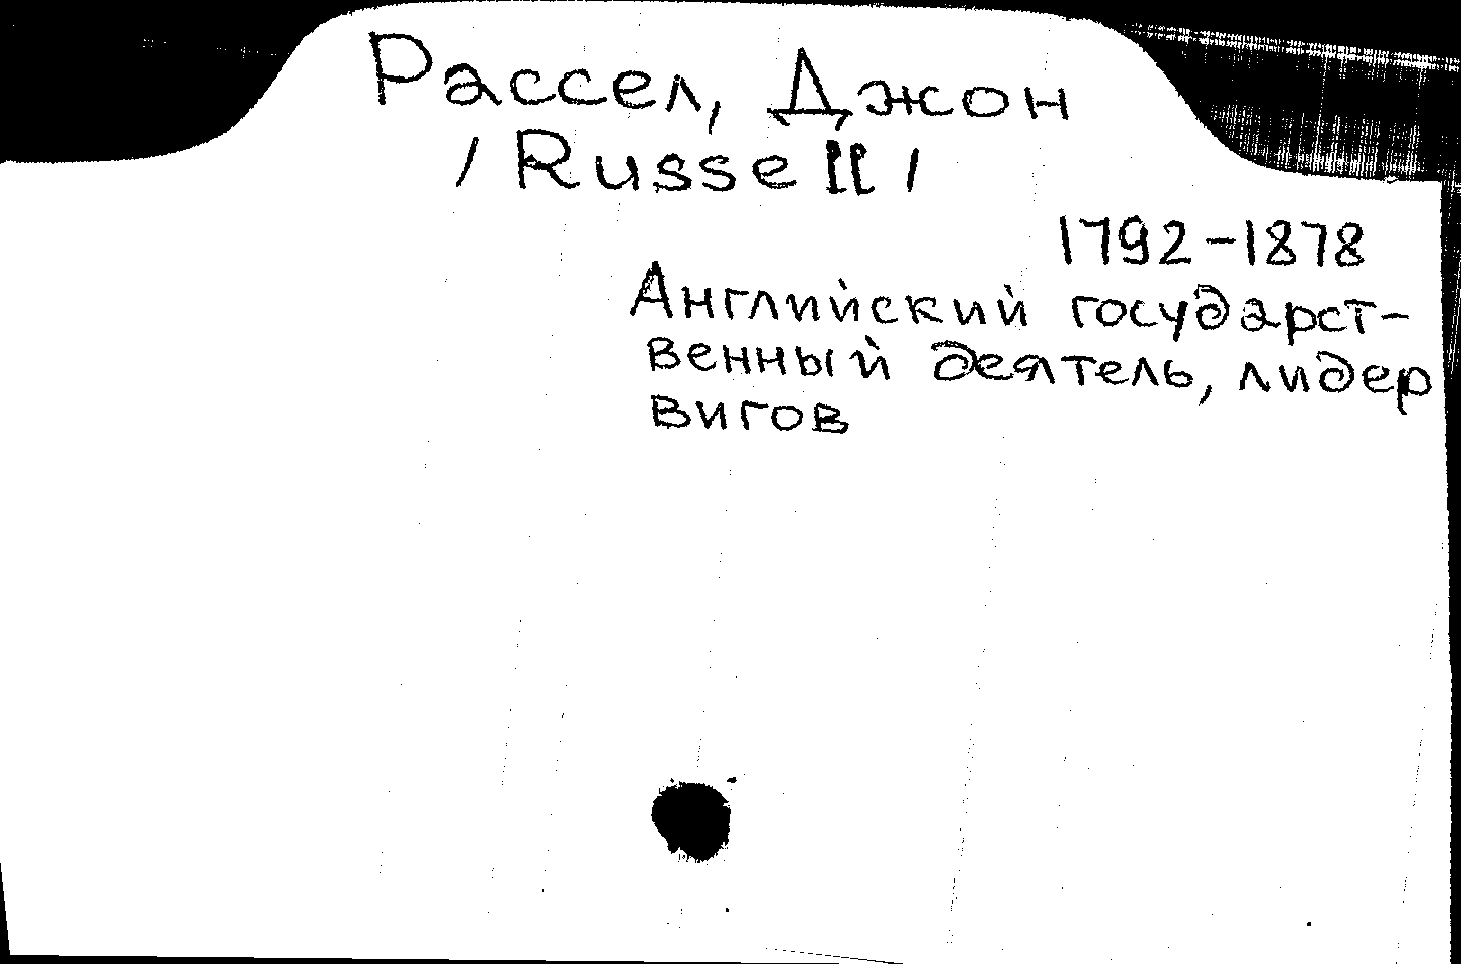 Рассел, Джон
/Russell/
1792-1878
Английский государст-
венный деятель, лидер
вигов